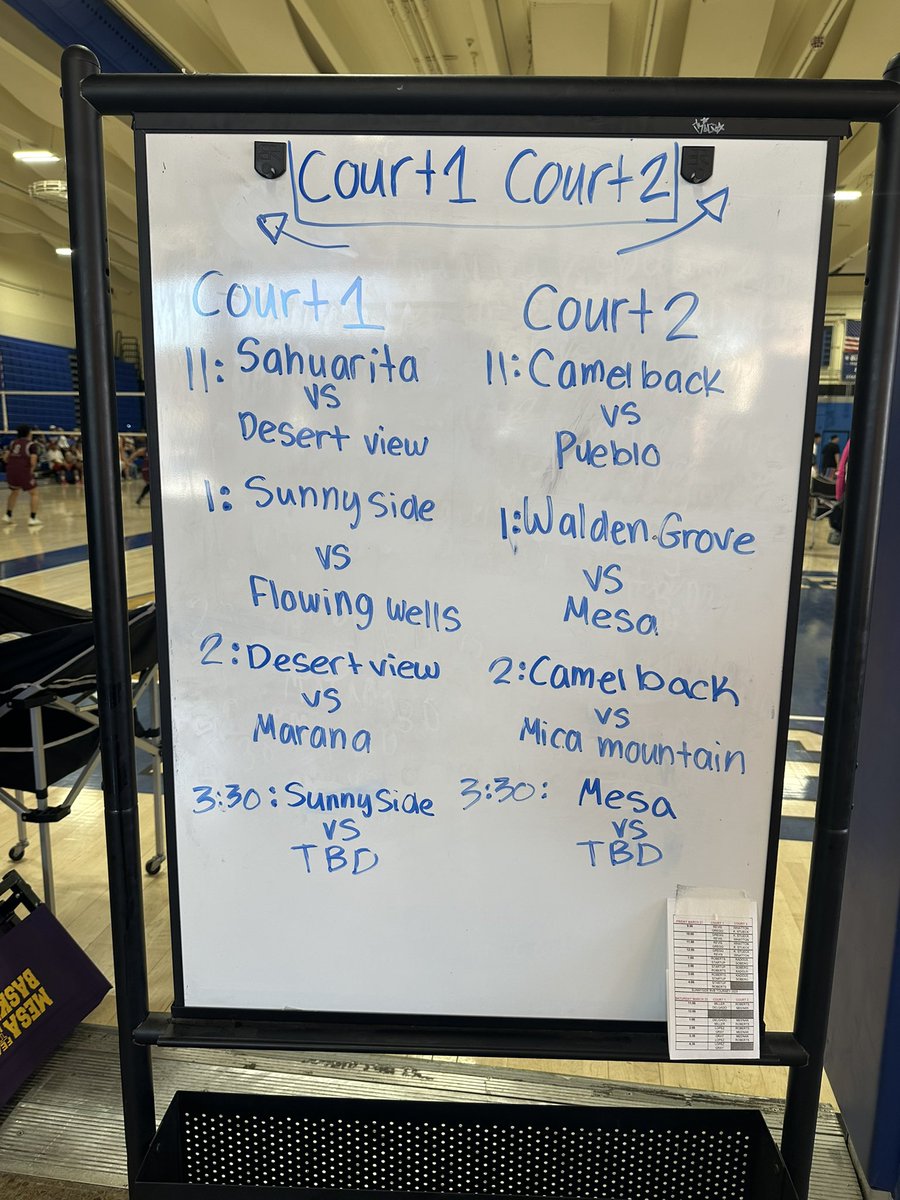 Court 1 Court 2
Court 1
11: Sahuarita
vs
Desert view
1: Sunnyside
vs
Flowing wells
2: Desert view
vs
Marana
3:30: Sunnyside
vs
TBD
Court 2
11: Camelback
vs
Pueblo
1: Walden Grove
vs
Mesa
2: Camelback
vs
Mica mountain
3:30: Mesa
vs
TBD
MESA
BASK